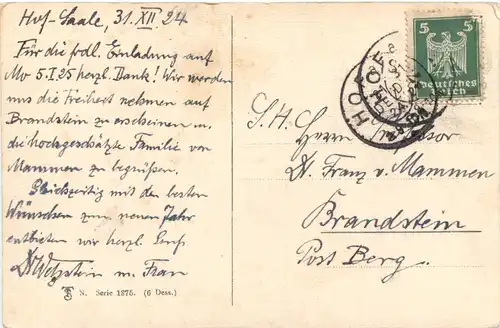 Hof-Saale, 31. XII 24
Für die frdl. Einladung auf
Mo 5. I 25 herzl. Dank! Wir werden
uns die Freiheit nehmen auf
Brandstein zu erscheinen u.
die hochgeschätzte Familie von
Mammen zu begrüßen.
Gleichzeitig mit den besten
Wünschen zum neuen Jahr
entbieten wir herzl. Gruß
Wetzstein u. Frau
N. Serie 1875. (6 Dess.)
5 5
Deutsches
Reich
HOF
S. H. Herrn
Dr. Franz v. Mammen
Brandstein
Post Berg.